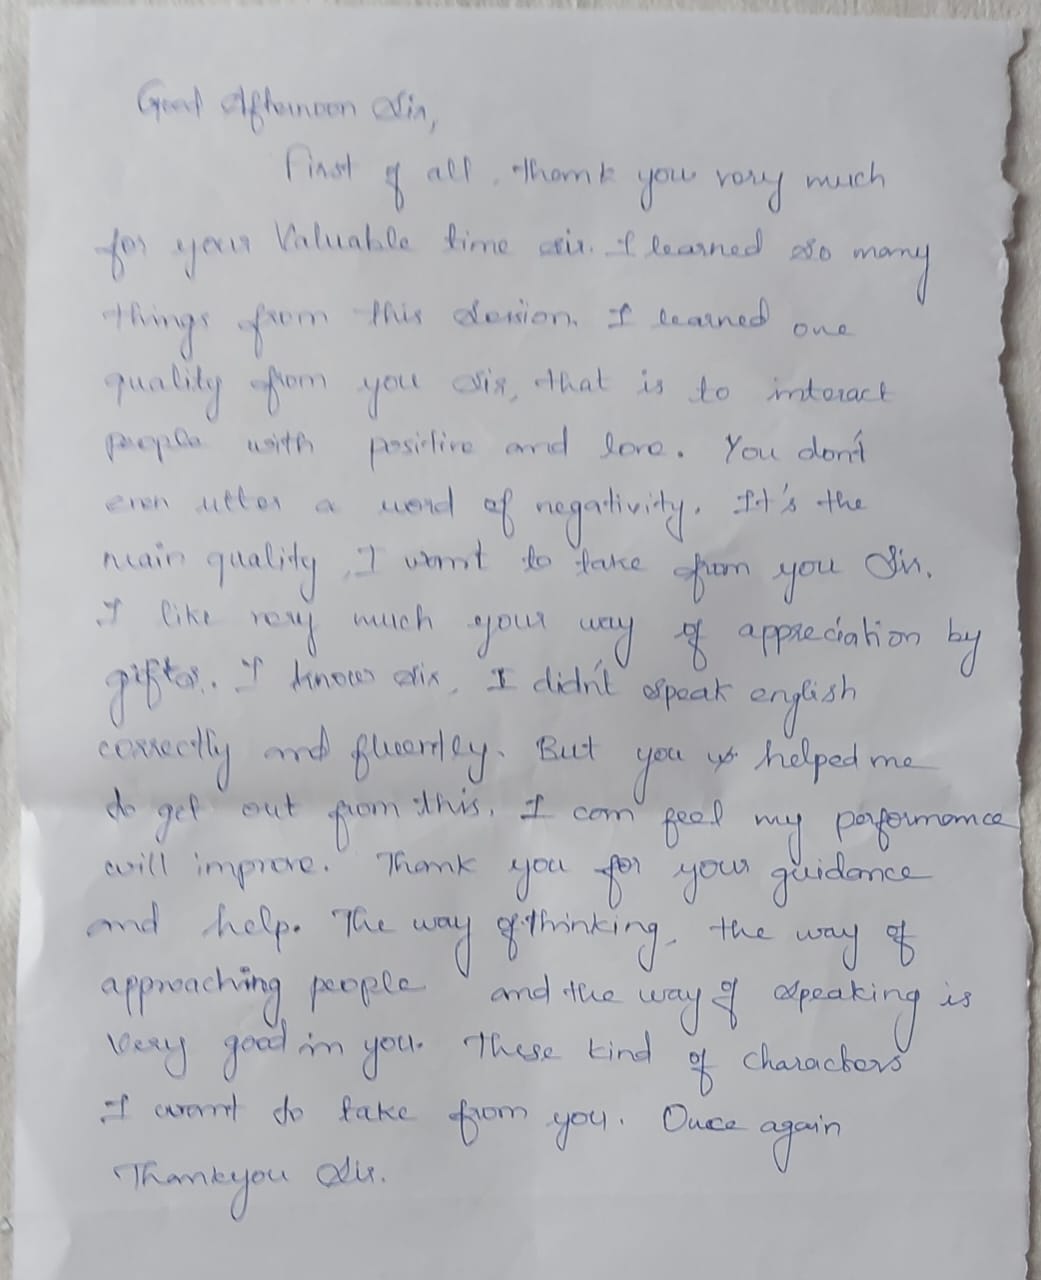 Good Afternoon Sir,
First of all, thank you very much
for your Valuable time sir. I learned so many
things from this session. I learned one
quality from you sir, that is to interact
people with positive and love. You don't
even utter a word of negativity. It's the
main quality, I want to take from you Sir.
I like very much your way of appreciation by
gifts. I know sir, I didn't speak english
correctly and fluently. But you helped me
to get out from this. I can feel my performance
will improve. Thank you for your guidance
and help. The way of thinking, the way of
approaching people and the way of speaking is
very good in you. These kind of characters
I want to take from you. Once again
Thankyou Sir.